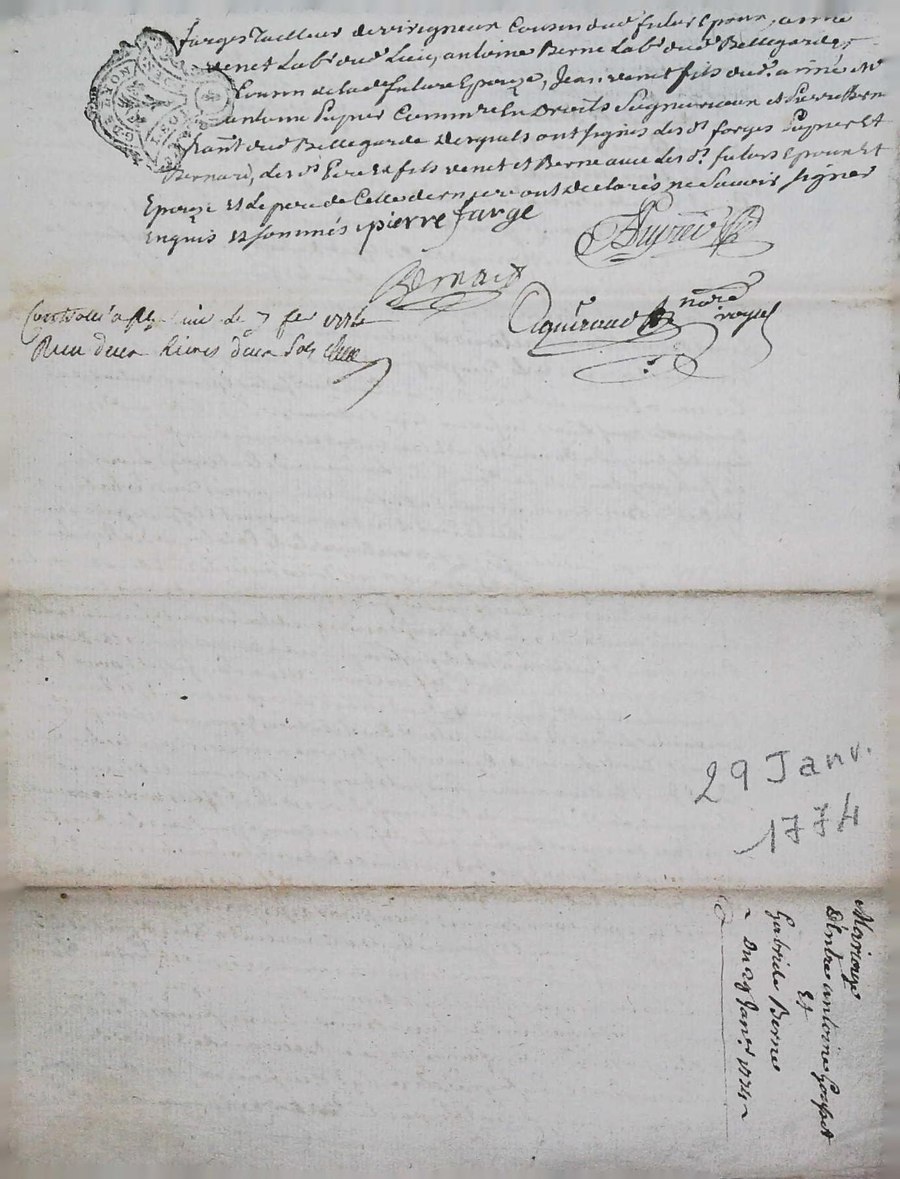 farges Tailleur de virigneux Cousin dud. futur Epoux, aimé
venet Lab.r dud. Lieu, antoine Berne Lab.r dud. Bellegarde,
Cousin de lad.e future Epouze, Jean venet fils dud. aimé, M.e
antoine Pupier Comm.re En Droits Seigneuriaux et Pierre Bern
dud. Bellegarde Desquels ont signés les d.s farges Pupier Et
Bernard, les d.s Pere Et fils venet et Berne avec les d.s futurs Epoux Et
Epouze Et Le pere de Cette derniere ont declarés ne Savoir signer
Enquis Et Sommés. pierre farge
Bernard
notre
royal
Controllé a le 7 fe 1774
Reçu deux Livres deux Sols
DE LYON
29 Janv.
1774
Mariage
D'Entre antoine
Et
Gabriele Berne
Du 29 Janv.r 1774